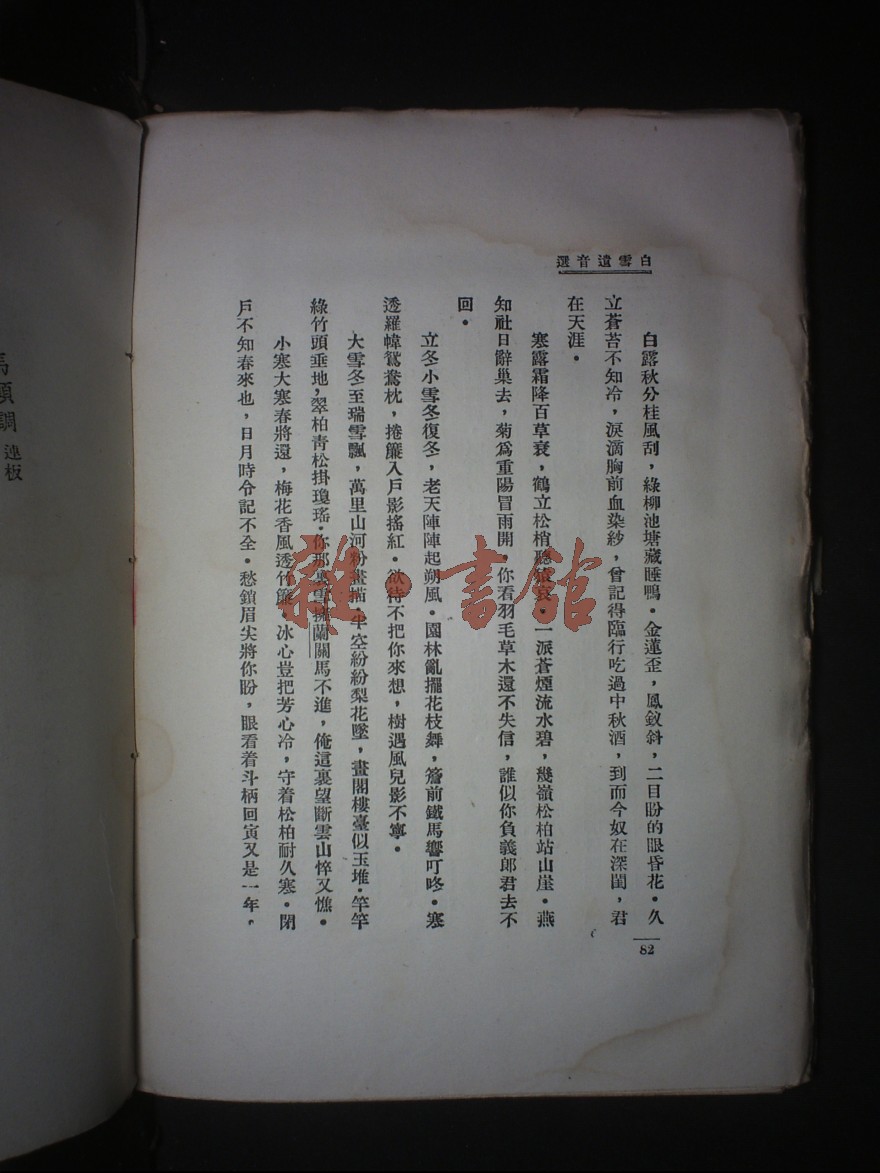 白雪遺音選
白露秋分桂風刮，綠柳池塘藏睡鴨。金蓮歪，鳳釵斜，二目盼的眼昏花。久
立蒼苔不知冷，淚滴胸前血染紗，曾記得臨行吃過中秋酒，到而今奴在深閨，君
在天涯。
寒露霜降百草衰，鶴立松梢聽猿哀。一派蒼煙流水碧，幾嶺松柏站山崖。燕
知社日辭巢去，菊爲重陽冒雨開，你看羽毛草木還不失信，誰似你負義郎君去不
回。
立冬小雪冬復冬，老天陣陣起朔風。園林亂擺花枝舞，簷前鐵馬響叮咚。寒
透羅幃鴛鴦枕，捲簾入戶影搖紅。欲待不把你來想，樹遇風兒影不寧。
大雪冬至瑞雪飄，萬里山河粉畫描。半空紛紛梨花墜，畫閣樓臺似玉堆。竿竿
綠竹頭垂地，翠柏靑松掛瓊瑤。你那裏雪擁蘭關馬不進，俺這裏望斷雲山悴又憔。
小寒大寒春將還，梅花香風透竹簾。冰心豈把芳心冷，守着松柏耐久寒。閉
戶不知春來也，日月時令記不全。愁鎖眉尖將你盼，眼看着斗柄回寅又是一年。
82
馬頭調 連板
雜·書館